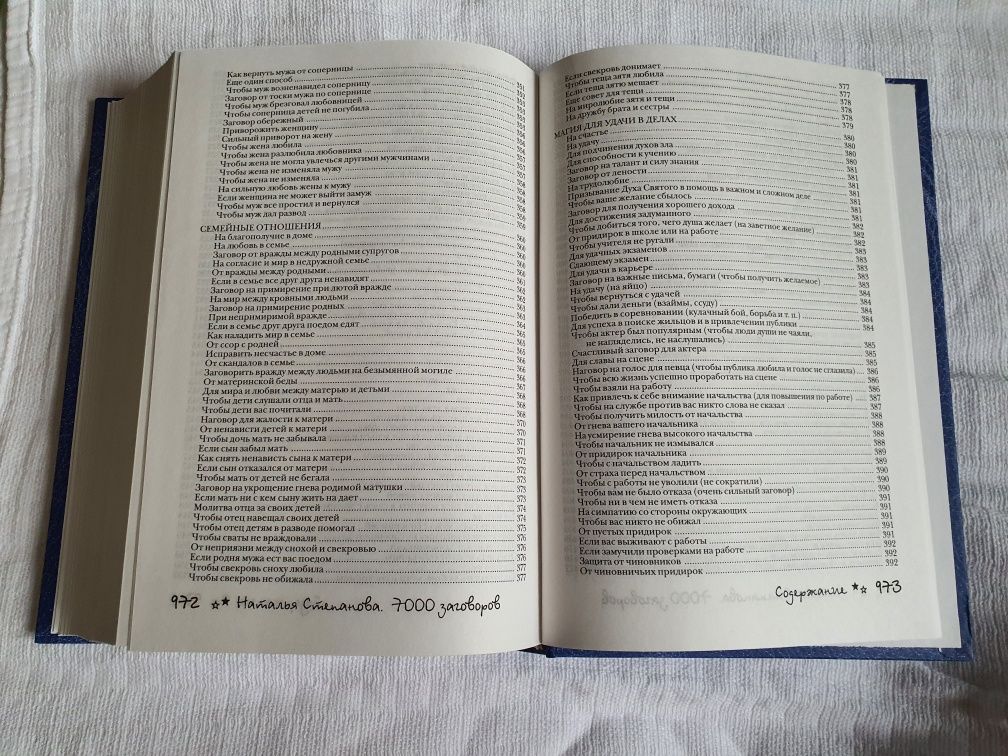 Как вернуть мужа от соперницы
Еще один способ 351
Чтобы муж возненавидел соперницу
Заговор от тоски мужа по сопернице
Чтобы муж брезговал любовницей
Чтобы соперница детей не погубила
Заговор обережный
Приворожить женщину
Сильный приворот на жену
Чтобы жена любила
Чтобы жена разлюбила любовника
Чтобы жена не могла увлечься другими мужчинами
Чтобы жена не изменяла мужу
Чтобы жена не изменяла
На сильную любовь жены к мужу
Если женщина не может выйти замуж
Чтобы муж все простил и вернулся
Чтобы муж дал развод
СЕМЕЙНЫЕ ОТНОШЕНИЯ
На благополучие в доме 360
На любовь в семье 360
Заговор от вражды между родными супругов
На согласие и мир в недружной семье
От вражды между родными
Если в семье все друг друга ненавидят
Заговор на примирение при лютой вражде
На мир между кровными людьми
Заговор на примирение родных
При непримиримой вражде
Если в семье друг друга поедом едят
Как наладить мир в семье
От ссор с родней 365
Исправить несчастье в доме
От скандалов в семье 366
Заговорить вражду между людьми на безымянной могиле 366
От материнской беды 367
Для мира и любви между матерью и детьми
Чтобы дети слушали отца и мать 368
Чтобы дети вас почитали 368
Наговор для жалости к матери
От ненависти детей к матери 370
Чтобы дочь мать не забывала 371
Если сын забыл мать 371
Как снять ненависть сына к матери 372
Если сын отказался от матери 372
Чтобы мать от детей не бегала 373
Заговор на укрощение гнева родимой матушки 373
Если мать ни с кем сыну жить на дает 373
Молитва отца за своих детей 374
Чтобы отец навещал своих детей 374
Чтобы отец детям в разводе помогал 375
Чтобы сваты не враждовали 376
От неприязни между снохой и свекровью 376
Если родня мужа ест вас поедом 376
Чтобы свекровь сноху любила 377
Чтобы свекровь не обижала 377
972 Наталья Степанова. 7000 заговоров
Если свекровь донимает
Чтобы теща зятя любила 377
Если теща зятю мешает 377
Еще совет для тещи 378
На миролюбие зятя и тещи 378
На дружбу брата и сестры 379
МАГИЯ ДЛЯ УДАЧИ В ДЕЛАХ
На счастье 380
На удачу 380
Для подчинения духов зла 380
Для способности к учению 380
Заговор на талант и силу знания 381
Заговор от лености 381
На трудолюбие 381
Призывание Духа Святого в помощь в важном и сложном деле 381
Чтобы ваше желание сбылось 381
Заговор для получения хорошего дохода 381
Для достижения задуманного
Чтобы добиться того, чего душа желает (на заветное желание) 382
От придирок в школе или на работе 382
Чтобы учителя не ругали 382
Для удачных экзаменов 383
Сдающему экзамен 383
Для удачи в карьере 383
Заговор на важные письма, бумаги (чтобы получить желаемое) 383
На удачу (на яйцо) 383
Чтобы вернуться с удачей 384
Чтобы дали деньги (взаймы, ссуду) 384
Победить в соревновании (кулачный бой, борьба и т. п.) 384
Для успеха в поиске жильцов и в привлечении публики 384
Чтобы актер был популярным (чтобы люди души не чаяли,
не нагляделись, не наслушались) 385
Счастливый заговор для актера 385
Для славы на сцене 385
Наговор на голос для певца (чтобы публика любила и голос не сглазила) 386
Чтобы всю жизнь успешно проработать на сцене 386
Чтобы взяли на работу 386
Как привлечь к себе внимание начальства (для повышения по работе) 387
Чтобы на службе против вас никто слова не сказал 387
Чтобы получить милость от начальства 388
От гнева вашего начальника 388
На усмирение гнева высокого начальства 388
Чтобы начальник не измывался 388
От придирок начальника 389
Чтобы с начальством ладить 389
От страха перед начальством 390
Чтобы с работы не уволили (не сократили) 390
Чтобы вам не было отказа (очень сильный заговор) 390
Чтобы ни в чем не иметь отказа 391
На симпатию со стороны окружающих 391
Чтобы вас никто не обижал 391
От пустых придирок 391
Если вас выживают с работы 392
Если замучили проверками на работе 392
Защита от чиновников 392
От чиновничьих придирок 392
Содержание 973